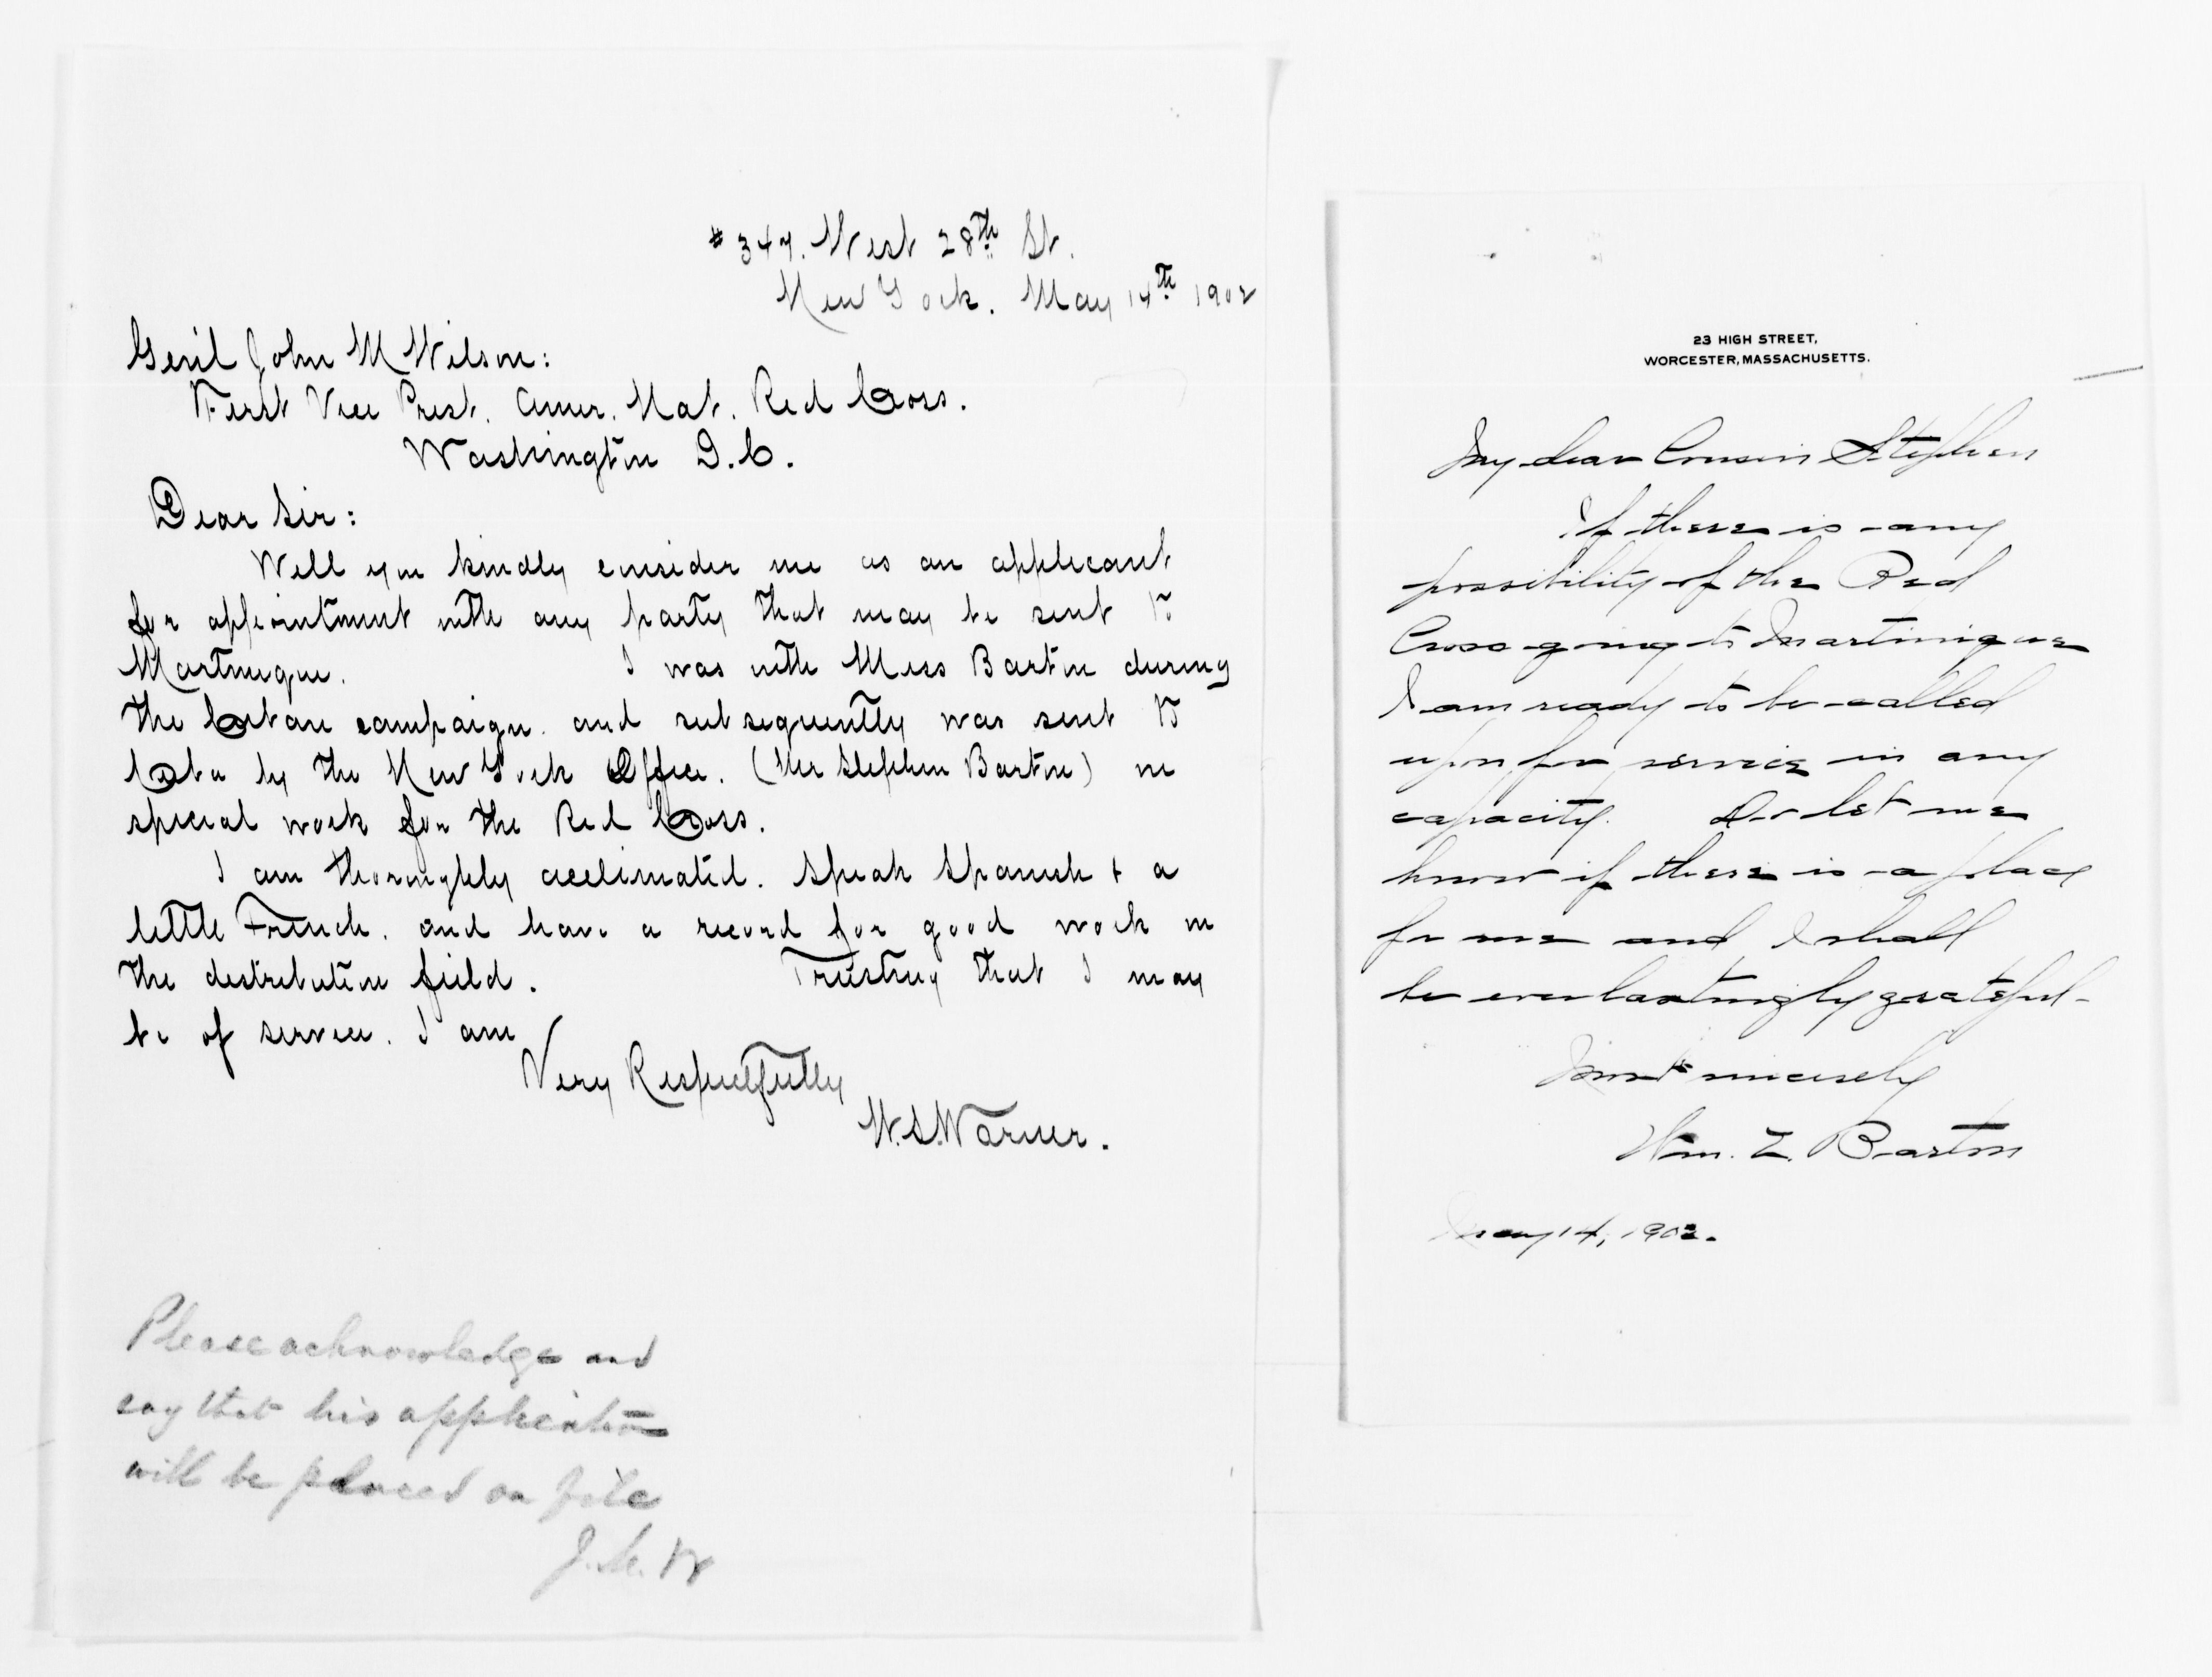 #347. West 28th St.
New York. May 14th 1902
Genl John M Wilson:
First Vice Prest. Amer. Nat. Red Cross.
Washington D.C.
Dear Sir:
Will you kindly consider me as an applicant
for appointment with any party that may be sent to
Martinique. I was with Miss Barton during
the Cuban campaign. and subsequently was sent to
Cuba by the New York Office. (Mr Stephen Barton) on
special work for the Red Cross.
I am thoroughly acclimated. Speak Spanish & a
little French. and have a record for good work in
the distribution field. Trusting that I may
be of service. I am
Very Respectfully
W.S. Warner.
Please acknowledge and
say that his application
will be placed on file
J.M.W
23 HIGH STREET,
WORCESTER, MASSACHUSETTS.
My dear Cousin Stephen
If there is any
possibility of the Red
Cross going to Martinique
I am ready to be called
upon for service in any
capacity. Do let me
know if there is a place
for me and I shall
be everlastingly grateful-
Most sincerely
Wm. E. Barton
May 14, 1902.